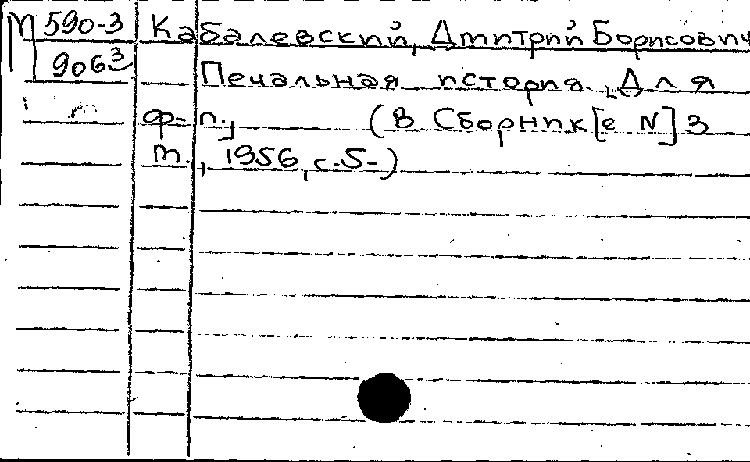 М 590-3 Кабалевский, Дмитрий Борисович
906³ Печальная история. Для
ф-п., (В Сборник[е N] 3
т., 1956, с.5-)